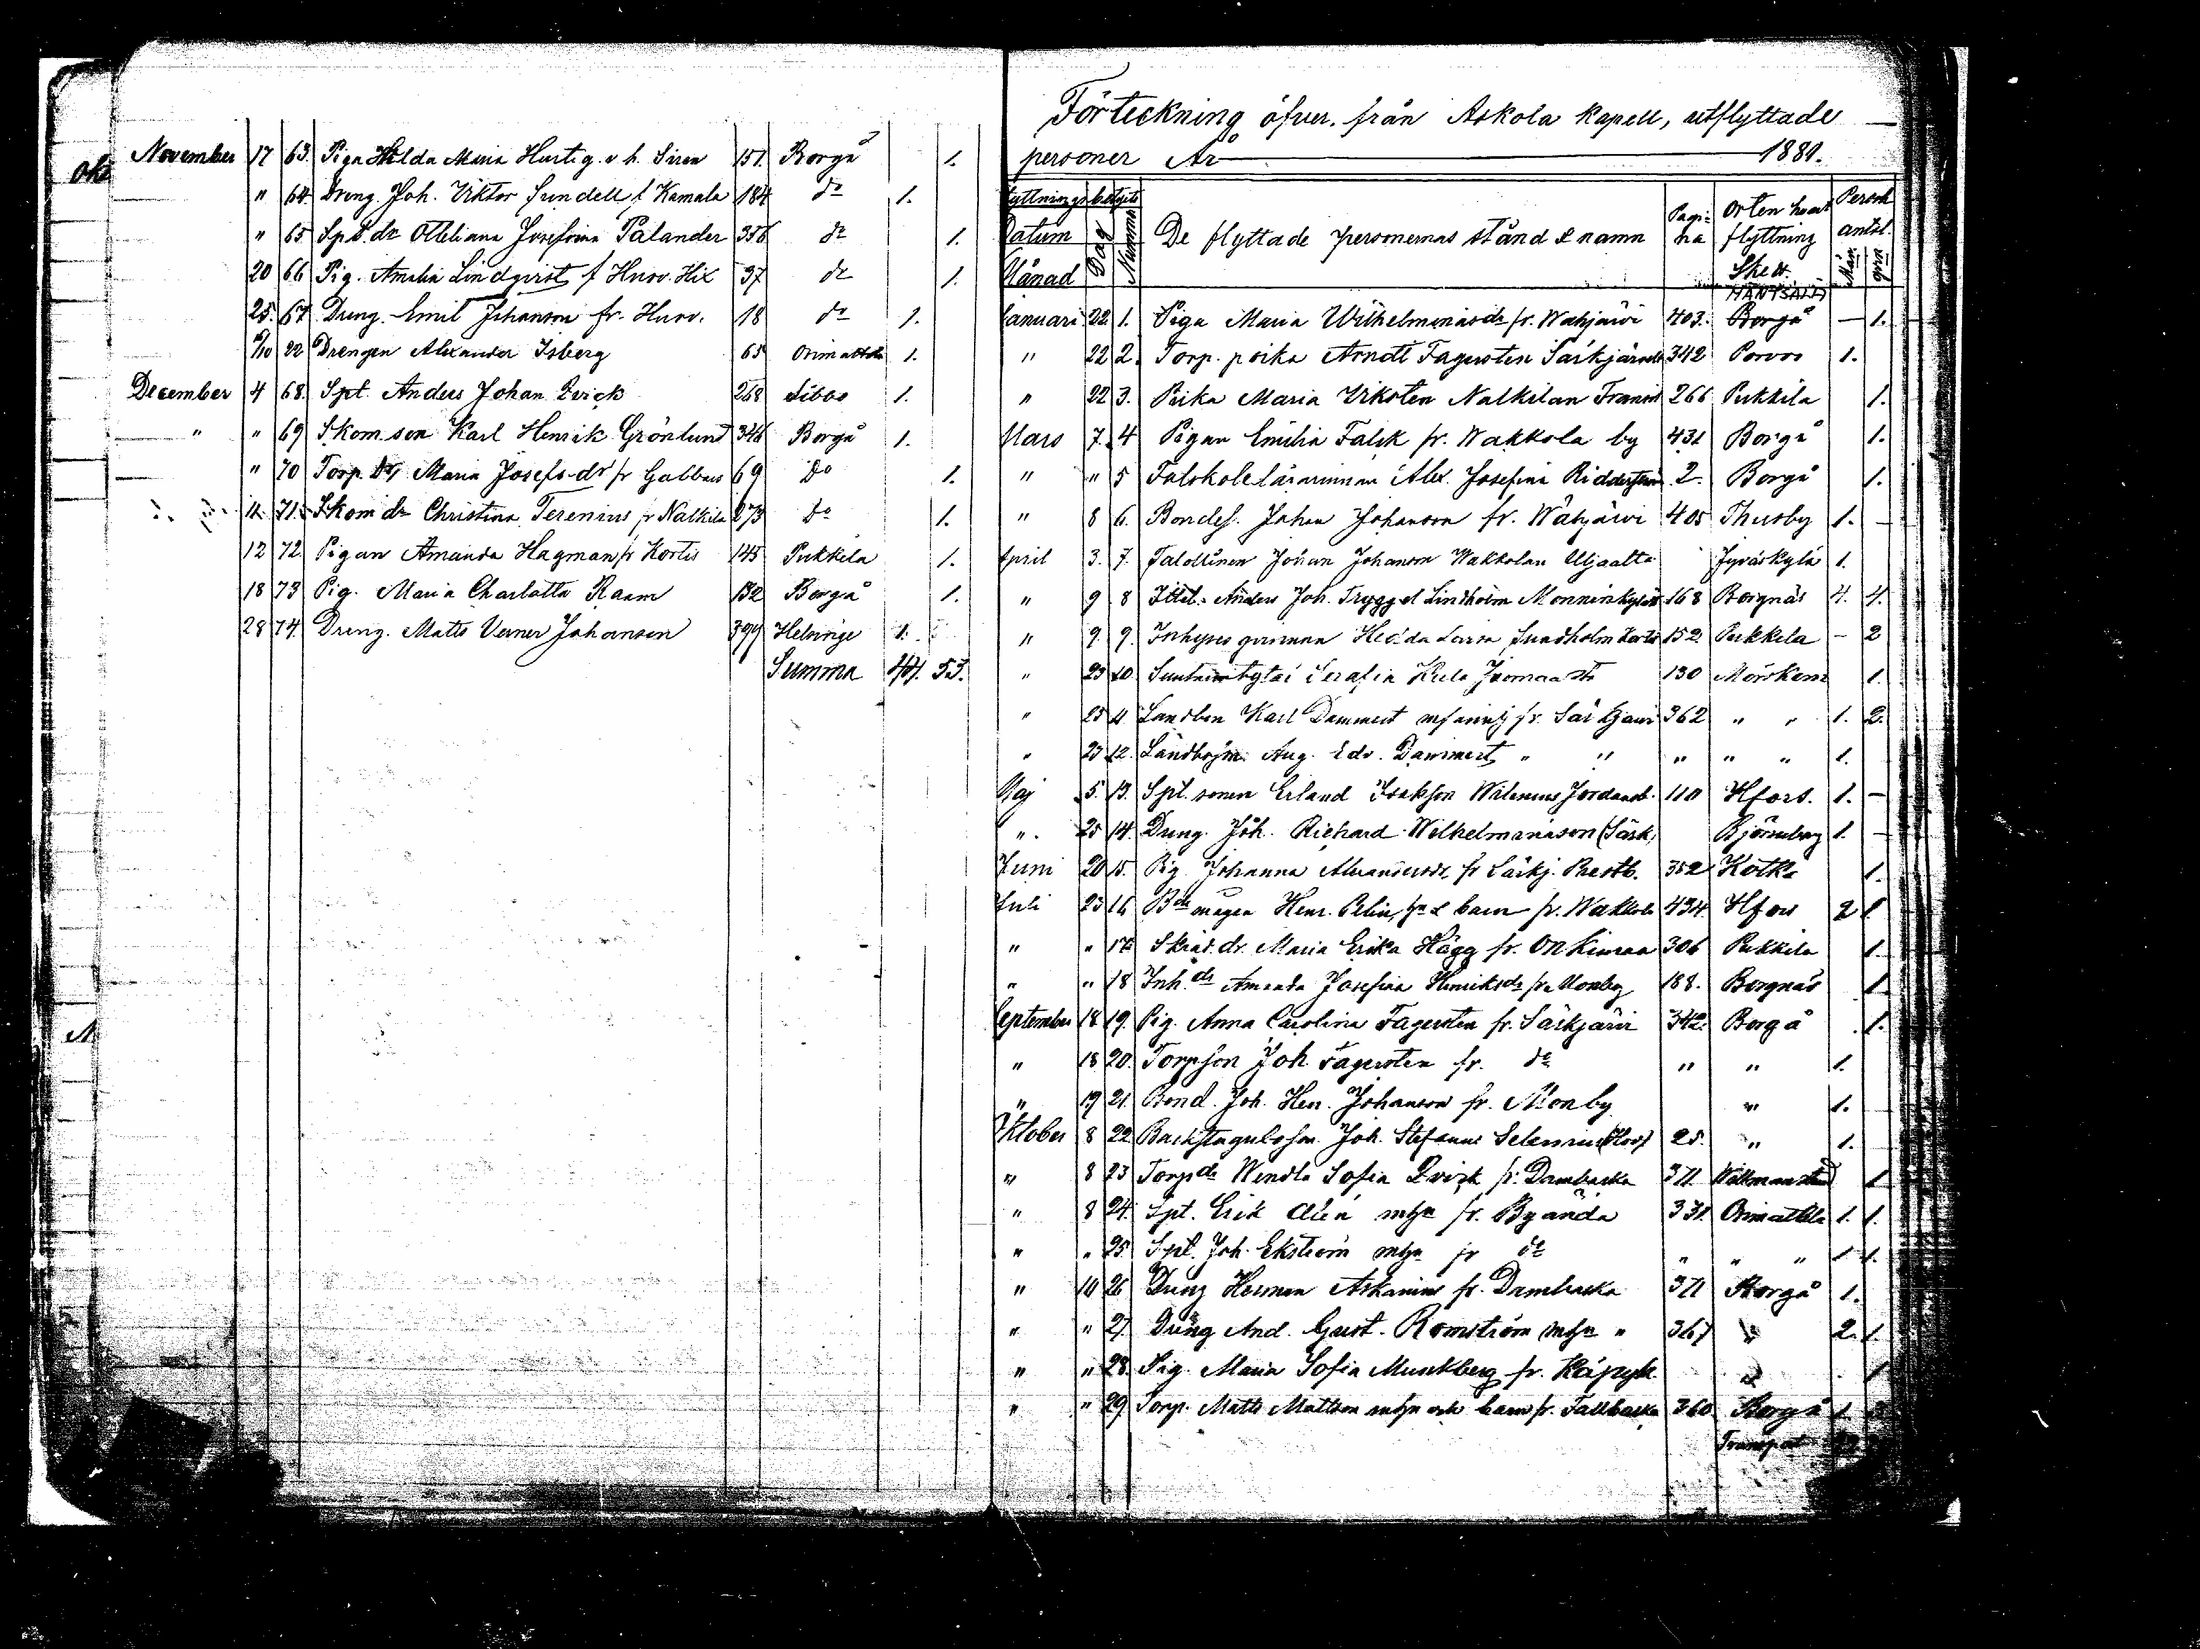 November 17 63. Piga Hilda Maria Hurtig. v h. Siren 151. Borgå 1.
" 64. Dreng. Joh. Viktor Sundell f Kamala 184 do 1.
" 65 Spt. dr Otteliana Josefina Palander 356 do 1.
20 66 Pig. Amalia Lindqvist f Huvv. Hix 37 do 1.
25. 67. Dreng. Emil Johanson fr. Huvv. 18 do 1.
22 Drengen Alexander Isberg 65 Orimattila 1.
December 4 68. Spt. Anders Johan Qvick 268 Sibbo 1.
" " 69 Skom. son Karl Henrik Grönlund 346 Borgå 1.
" 70 Torp. dr Maria Josefs dr fr Gabbas 69 do 1.
11. 71. Skom dr Christina Terenius fr Nalkila 273 do 1.
12 72. Pigan Amanda Hagman fr Kortis 145 Pukkila 1.
18 73 Pig. Maria Charlotta Raam 132 Borgå 1.
28 74. Dreng. Matts Verner Johanson 399 Helsinge 1.
Summa 44. 53.
Förteckning öfver, från Askola kapell, utflyttade
personer År 1881.
flyttnings betygets Datum Månad Dag Nummer De flyttade personernas stånd & namn Pagina Orten hvart flyttning Skett. Person antal.
MÄNTSÄLÄ
Januari 22. 1. Piga Maria Wilhelminas dr fr. Wahijärvi 403. Borgå — 1.
" 22 2. Torp. poika Arndt Fagersten Särkjärvelt 342 Porvoo 1.
" 22 3. Piika Maria Viksten Nalkilan 266 Pukkila 1.
Mars 7. 4 Pigan Emilia Falck fr. Wakkola by 431 Borgå 1.
" " 5 Folkskolelärarinnan Alex. Josefina 2. Borgå 1.
" 8 6. Bondes. Johan Johanson fr. Wahijärvi 405 Thusby 1. —
April 3. 7. Talollinen Johan Johanson Wakkolan Jyväskylä 1.
" 9 8 Anders Joh. Trygg el Lindholm Monninkylä 168 Borgnäs 4. 4.
" 9. 9. Inhyses qvinnan Hedda Lovisa Sundholm 152 Pukkila — 2
" 23 10. Serafia 130 Mörskom 1.
" 25 11. Landbon Karl Dammert m familj fr. Särkjärvi 362 " " 1. 2.
" 23 12. Landbosson Aug. Edv. Dammert " " " " " 1.
Maj 5. 13. Spt. sonen Erland Isaksson Walenius 110 Hfors. 1. —
" 25 14. Dreng. Joh. Richard Wilhelminason (Särk) Björneborg 1. —
Juni 20 15. Pig Johanna Alexandersdr fr Särkj. Prestb. 352 Kotka 1.
Juli 23 16 Bde mågen Henr. Pelin, hu & barn fr. Wakkola 434. Hfors 2 1
" " 17. Skräd. dr. Maria Erika Hägg fr. Onkimaa 306 Pukkila 1.
" " 18 Inh. dr Amanda Josefina Henriksdr fr Monby 188. Borgnäs 1
September 18 19. Pig. Anna Carolina Fagersten fr. Särkjärvi 342. Borgå 1.
" 18 20. Torpson Joh Fagersten fr. do " " 1.
" 19 21. Bond. Joh. Hen. Johanson fr. Monby " 1.
Oktober 8 22. Backstuguboson. Joh. Stefanus Selenius 25. " 1.
" 8 23 Torpdr Wendla Sofia Qvick fr. Dambacka 371 Walkmanstrand 1
" 8 24. Spt. Erik Alén mhu fr. Byända 331. Orimattila 1. 1.
" " 25. Spt. Joh. Ekström mhu fr do " " " 1 1.
" 10 26 Dreng Herman Askanius fr. Dambacka 371 Borgå 1.
" " 27. Dreng And. Gust. Romström mhu " 367 " 2. 1.
" " 28. Pig. Maria Sofia Munkberg fr. " 1
" " 29. Torp. Matts Mattson mhu och barn fr. Tallbacka 360 Borgå 1
Transport